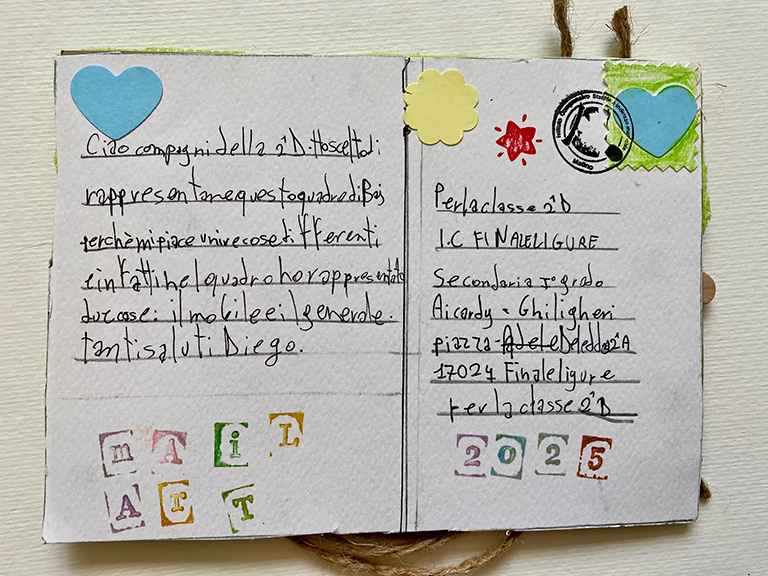 Ciao compagni della 2^D. Ho scelto di
rappresentare questo quadro di Baj
perchè mi piace unire cose differenti
e infatti nel quadro ho rappresentato
due cose: il mobile e il generale.
tanti saluti Diego.
mAiL
ArT
Per la classe 2^D
I.C FINALE LIGURE
Secondaria I° grado
Aicardy - Ghiligheri
piazza Deledda 2^A
17024 Finale ligure
per la classe 2^D
2025